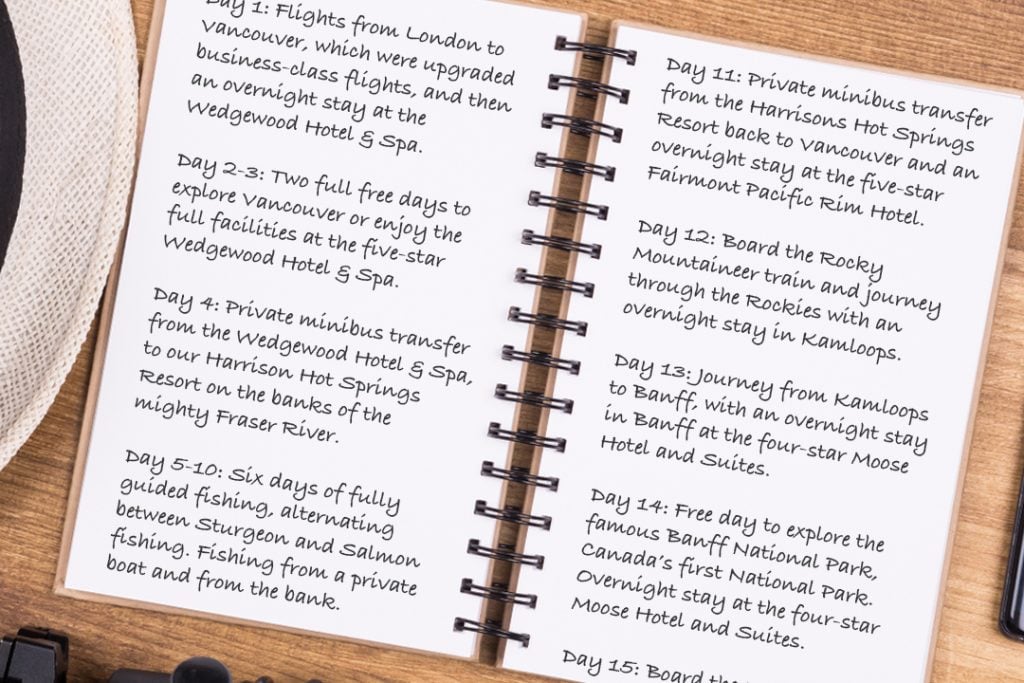 Day 1: Flights from London to
Vancouver, which were upgraded
business-class flights, and then
an overnight stay at the
Wedgewood Hotel & Spa.
Day 2-3: Two full free days to
explore Vancouver or enjoy the
full facilities at the five-star
Wedgewood Hotel & Spa.
Day 4: Private minibus transfer
from the Wedgewood Hotel & Spa,
to our Harrison Hot Springs
Resort on the banks of the
mighty Fraser River.
Day 5-10: Six days of fully
guided fishing, alternating
between Sturgeon and Salmon
fishing. Fishing from a private
boat and from the bank.
Day 11: Private minibus transfer
from the Harrisons Hot Springs
Resort back to Vancouver and an
overnight stay at the five-star
Fairmont Pacific Rim Hotel.
Day 12: Board the Rocky
Mountaineer train and journey
through the Rockies with an
overnight stay in Kamloops.
Day 13: Journey from Kamloops
to Banff, with an overnight stay
in Banff at the four-star Moose
Hotel and Suites.
Day 14: Free day to explore the
famous Banff National Park,
Canada's first National Park.
Overnight stay at the four-star
Moose Hotel and Suites.
Day 15: Board